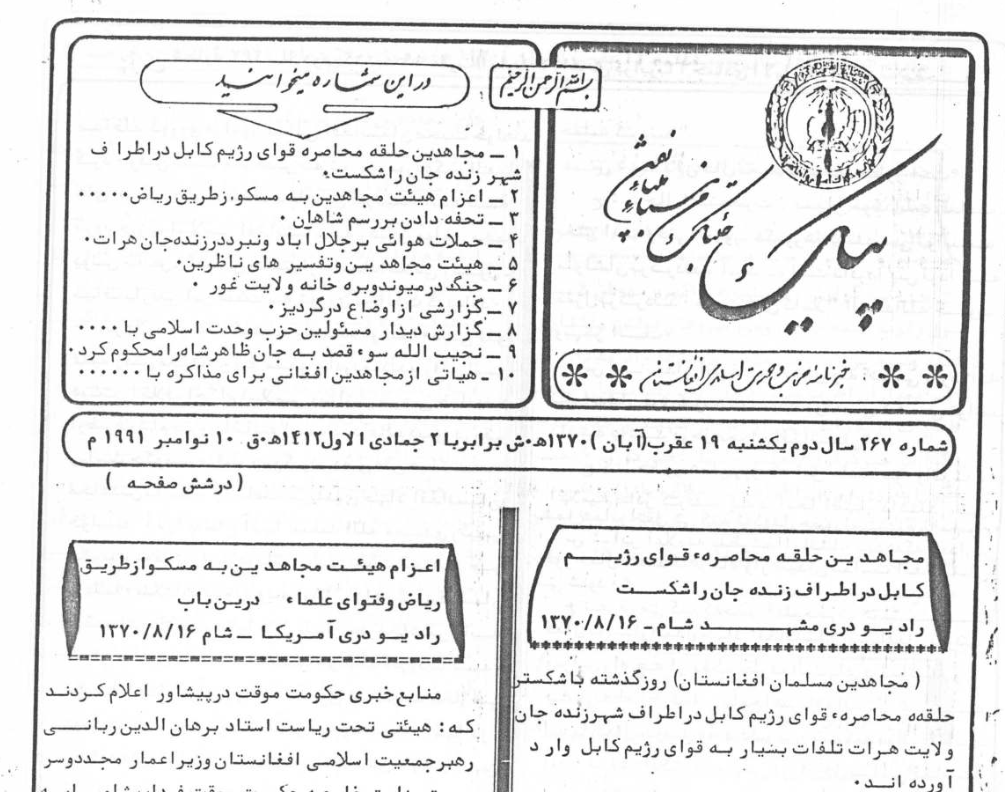 بسم الله الرحمن الرحیم
پیام
خبرنامه حزب وحدت اسلامی افغانستان
در این شماره میخوانید
۱ ــ مجاهدین حلقه محاصره قوای رژیم کابل دراطرا ف
شهر زنده جان راشکست.
۲ ــ اعزام هیئت مجاهدین به مسکو، زطریق ریاض.....
۳ ــ تحفه دادن بررسم شاهان .
۴ ــ حملات هوائی برجلال آباد ونبرددرزنده‌جان هرات.
۵ ــ هیئت مجاهد ین وتفسیر های ناظرین.
۶ ــ جنگ درمیوندوبره خانه ولایت غور .
۷ ــ گزارشی ازاوضاع درگردیز.
۸ ــ گزارش دیدار مسئولین حزب وحدت اسلامی با ....
۹ ــ نجیب الله سوء قصد به جان ظاهرشاه‌رامحکوم کرد.
۱۰ ــ هیاتی ازمجاهدین افغانی برای مذاکره با .......
شماره ۲۶۷ سال دوم یکشنبه ۱۹ عقرب(آبان )۱۳۷۰ه.ش برابربا ۲ جمادی ا لاول۱۴۱۲ه.ق. ۱۰ نوامبر ۱۹۹۱ م
(درشش صفحه )
مجاهد ین حلقه محاصرهء قوای رژیــم
کابل دراطراف زنده جان راشکســت
راد یــو دری مشهــد شام ـ ۱۳۷۰/۸/۱۶
( مجاهدین مسلمان افغانستان) روزگذشته باشکستن
حلقهء محاصرهء قوای رژیم کابل دراطراف شهرزنده جان
ولایت هرات تلفات بسیار به قوای رژیم کابل وار د
آورده انــد.
اعزام هیئت مجاهد ین به مسکوازطریق
ریاض وفتوای علماء درین‌باب
راد یـو دری آمریکا ــ شام ۱۳۷۰/۸/۱۶
منابع خبری حکومت موقت درپیشاور اعلام کـردنـد
کـه : هیئتی تحت ریاست استاد برهان الدین ربانــی
رهبرجمعیت اسلامی افغانستان وزیراعمار مجـددوسر